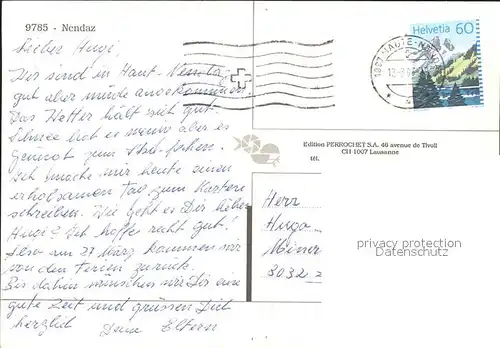 9785 - Nendaz
Helvetia 60
Lieber Hugi,
Wir sind in Haut-Nendaz
gut aber müde angekommen.
Das Wetter hält sich gut.
Schnee hat es wenig aber es
genügt zum Skifahren.
Ich mache mir heute einen
erholsamen Tag zum Karten
schreiben. Wie geht es Dir lieber
Hugi? Ich hoffe recht gut!
Also am 27 März kommen wir
von den Ferien zurück.
Bis dahin wünschen wir Dir eine
gute Zeit und grüssen Dich
herzlich Deine Eltern
Edition PERROCHET S.A. 46 avenue de Tivoli
tél. CH 1007 Lausanne
Herr
Hugo
8032
privacy protection
Datenschutz